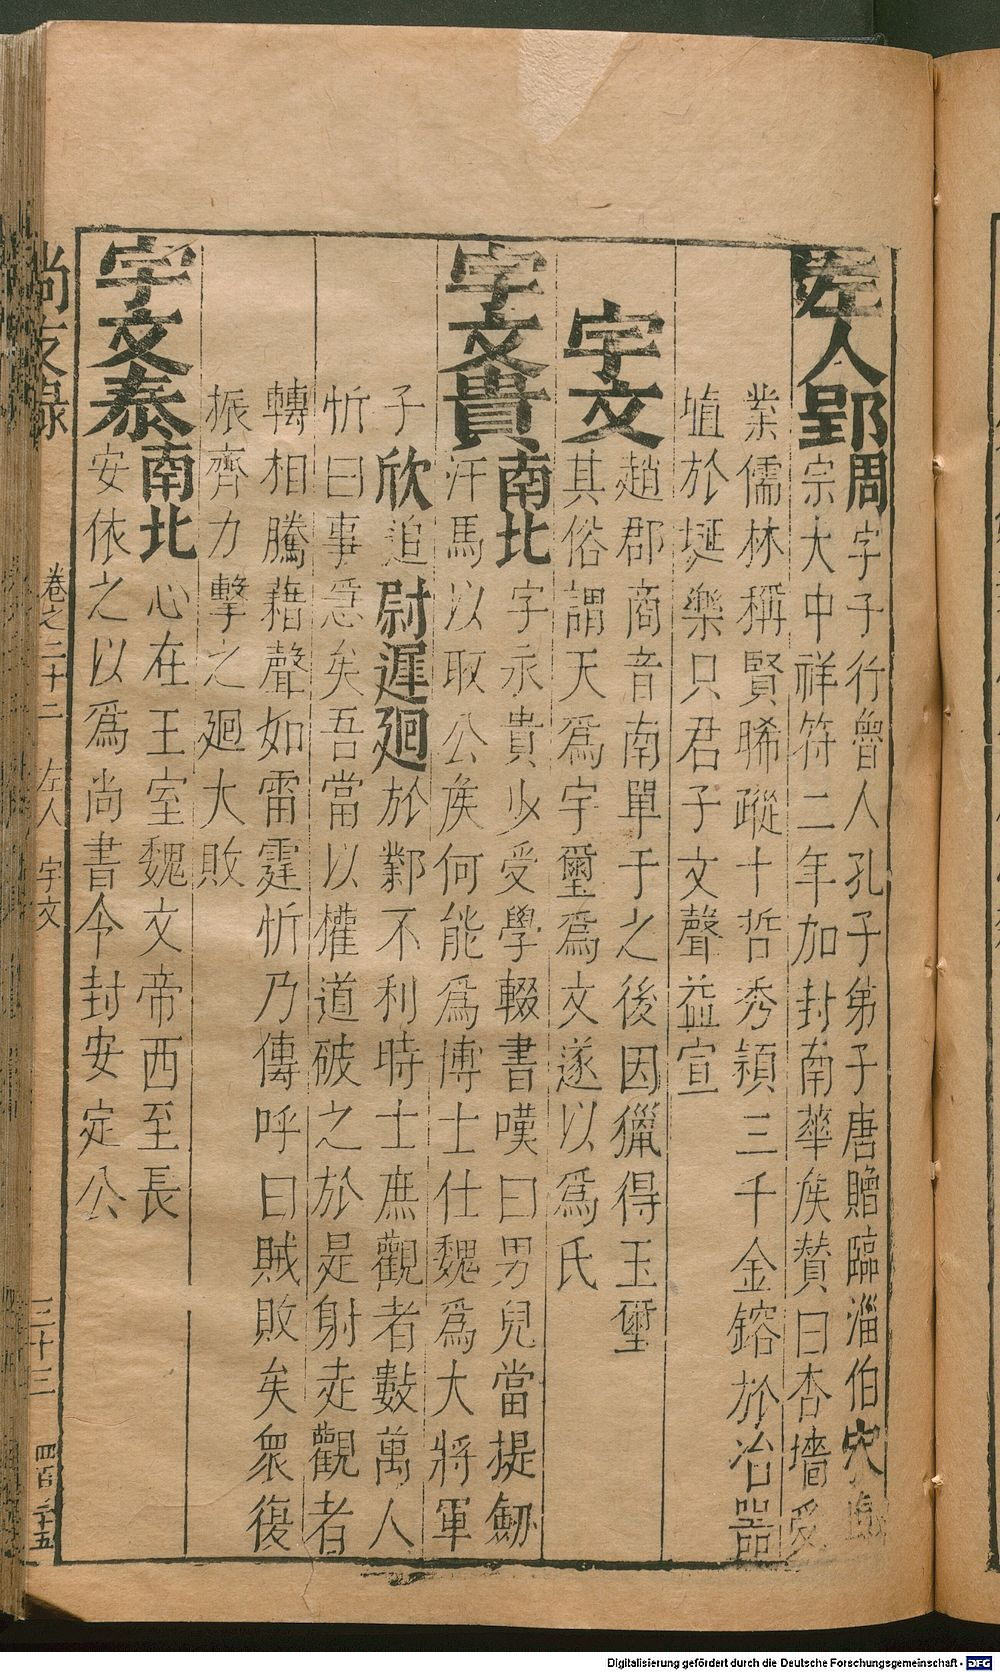 左人郢周字子行魯人孔子弟子唐贈臨淄伯宋眞
宗大中祥符二年加封南華矦贊曰杏墻受
業儒林稱賢晞蹤十哲秀穎三千金鎔於冶器
埴於埏樂只君子文聲益宣
宇文
趙郡商音南單于之後因獵得玉璽
其俗謂天爲宇璽爲文遂以爲氏
宇文貴南北字永貴少受學輟書嘆曰男兒當提劒
汗馬以取公矦何能爲博士仕魏爲大將軍
子欣追尉遲廻於鄴不利時士庶觀者數萬人
忻曰事急矣吾當以權道破之於是射走觀者
轉相騰藉聲如雷霆忻乃傳呼曰賊敗矣衆復
振齊力擊之廻大敗
宇文泰南北心在王室魏文帝西至長
安依之以爲尚書令封安定公
尚友錄 卷之二十二 左人 宇文 三十三 四百二十五
Digitalisierung gefördert durch die Deutsche Forschungsgemeinschaft - DFG